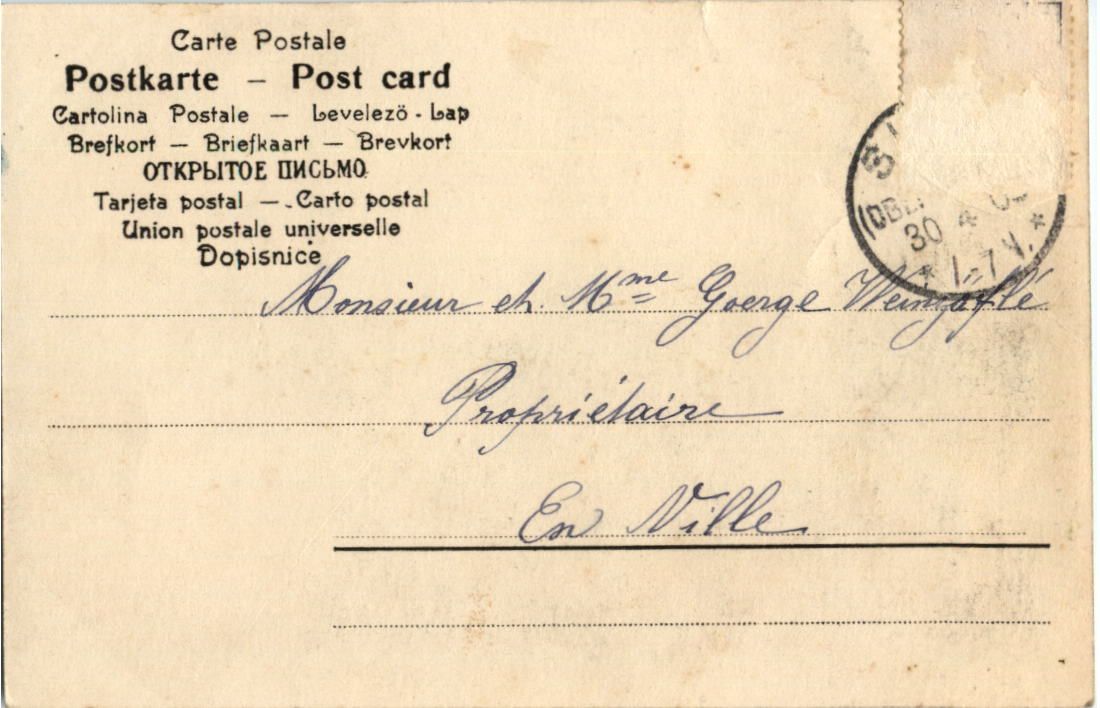 Carte Postale
Postkarte – Post card
Cartolina Postale — Levelezö - Lap
Brefkort — Briefkaart — Brevkort
ОТКРЫТОЕ ПИСЬМО
Tarjeta postal — Carto postal
Union postale universelle
Dopisnice
30 * * 1-7 N. *
Monsieur et Mme Goerge
Propriétaire
En Ville